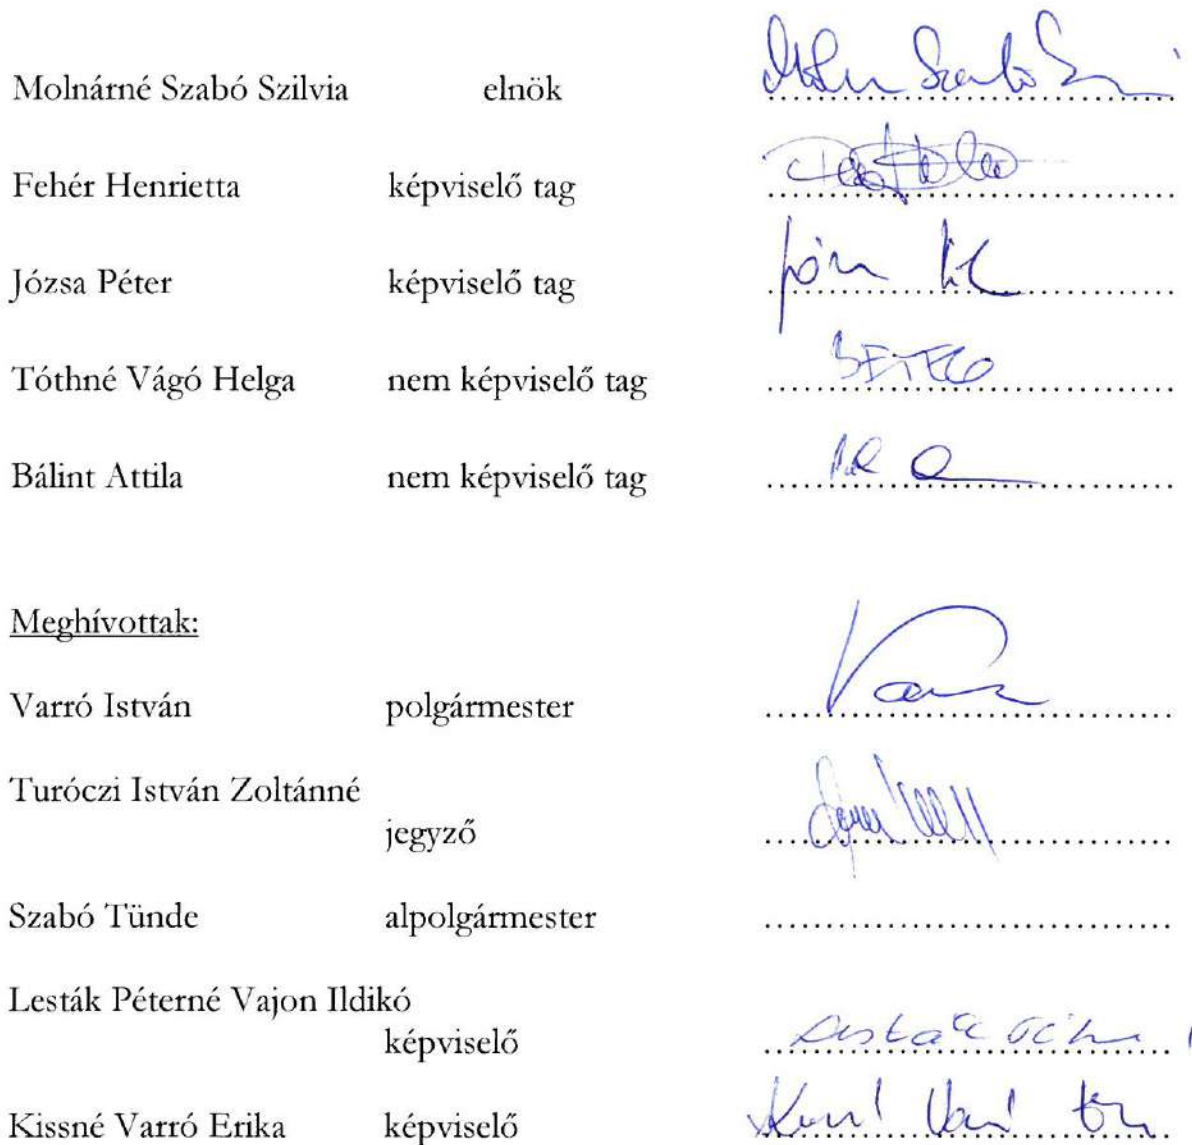 Molnárné Szabó Szilvia elnök ........................................
Fehér Henrietta képviselő tag ........................................
Józsa Péter képviselő tag ........................................
Tóthné Vágó Helga nem képviselő tag ........................................
Bálint Attila nem képviselő tag ........................................
Meghívottak:
Varró István polgármester ........................................
Turóczi István Zoltánné
jegyző ........................................
Szabó Tünde alpolgármester ........................................
Lesták Péterné Vajon Ildikó
képviselő ........................................
Kissné Varró Erika képviselő ........................................